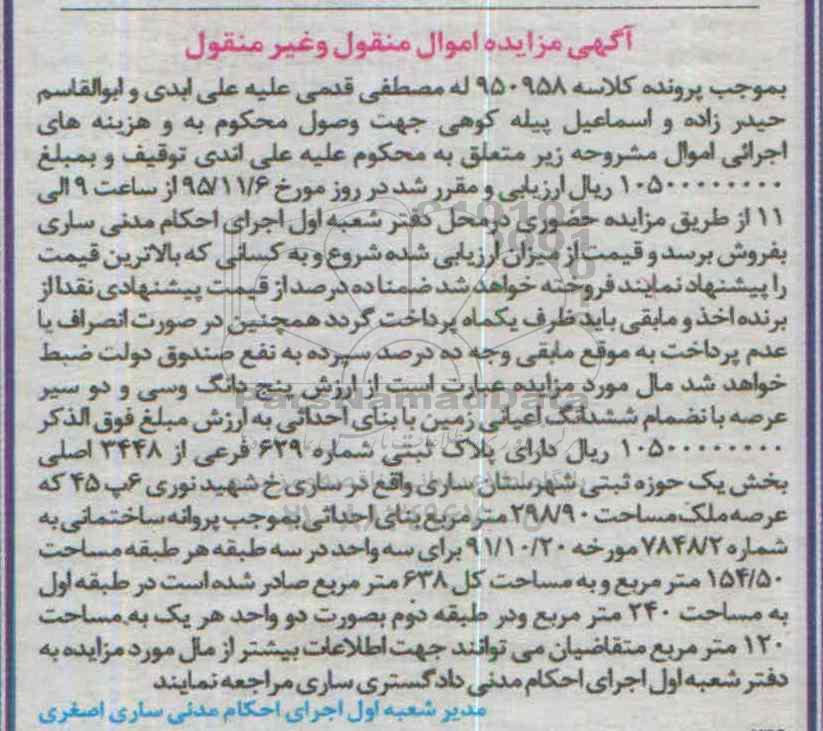 آگهی مزایده اموال منقول وغیر منقول
بموجب پرونده کلاسه ۹۵۰۹۵۸ له مصطفی قدمی علیه علی ابدی و ابوالقاسم
حیدر زاده و اسماعیل پیله کوهی جهت وصول محکوم به و هزینه های
اجرائی اموال مشروحه زیر متعلق به محکوم علیه علی اندی توقیف و بمبلغ
۱۰۵۰۰۰۰۰۰۰۰ ریال ارزیابی و مقرر شد در روز مورخ ۹۵/۱۱/۶ از ساعت ۹ الی
۱۱ از طریق مزایده حضوری درمحل دفتر شعبه اول اجرای احکام مدنی ساری
بفروش برسد و قیمت از میزان ارزیابی شده شروع و به کسانی که بالاترین قیمت
را پیشنهاد نمایند فروخته خواهد شد ضمنا ده درصد از قیمت پیشنهادی نقدا از
برنده اخذ و مابقی باید ظرف یکماه پرداخت گردد همچنین در صورت انصراف یا
عدم پرداخت به موقع مابقی وجه ده درصد سپرده به نفع صندوق دولت ضبط
خواهد شد مال مورد مزایده عبارت است از ارزش پنج دانگ وسی و دو سیر
عرصه با نضمام ششدانگ اعیانی زمین با بنای احداثی به ارزش مبلغ فوق الذکر
۱۰۵۰۰۰۰۰۰۰۰ ریال دارای پلاک ثبتی شماره ۶۳۹ فرعی از ۳۴۴۸ اصلی
بخش یک حوزه ثبتی شهرستان ساری واقع در ساری خ شهید نوری ۶پ ۴۵ که
عرصه ملک مساحت ۲۹۸/۹۰ متر مربع بنای احداثی بموجب پروانه ساختمانی به
شماره ۷۸۴۸/۲ مورخه ۹۱/۱۰/۲۰ برای سه واحد در سه طبقه هر طبقه مساحت
۱۵۴/۵۰ متر مربع و به مساحت کل ۶۳۸ متر مربع صادر شده است در طبقه اول
به مساحت ۲۴۰ متر مربع ودر طبقه دوم بصورت دو واحد هر یک به مساحت
۱۲۰ متر مربع متقاضیان می توانند جهت اطلاعات بیشتر از مال مورد مزایده به
دفتر شعبه اول اجرای احکام مدنی دادگستری ساری مراجعه نمایند
مدیر شعبه اول اجرای احکام مدنی ساری اصغری
ParsNamadData